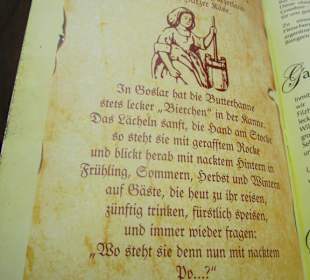 Harzer Käse
In Goslar hat die Butterhanne
stets lecker „Bierchen" in der Kanne.
Das Lächeln sanft, die Hand am Stocke
so steht sie mit gerafftem Rocke
und blickt herab mit nacktem Hintern in
Frühling, Sommern, Herbst und Wintern
auf Gäste, die heut zu ihr reisen,
zünftig trinken, fürstlich speisen,
und immer wieder fragen:
„Wo steht sie denn nun mit nacktem
Po...?"